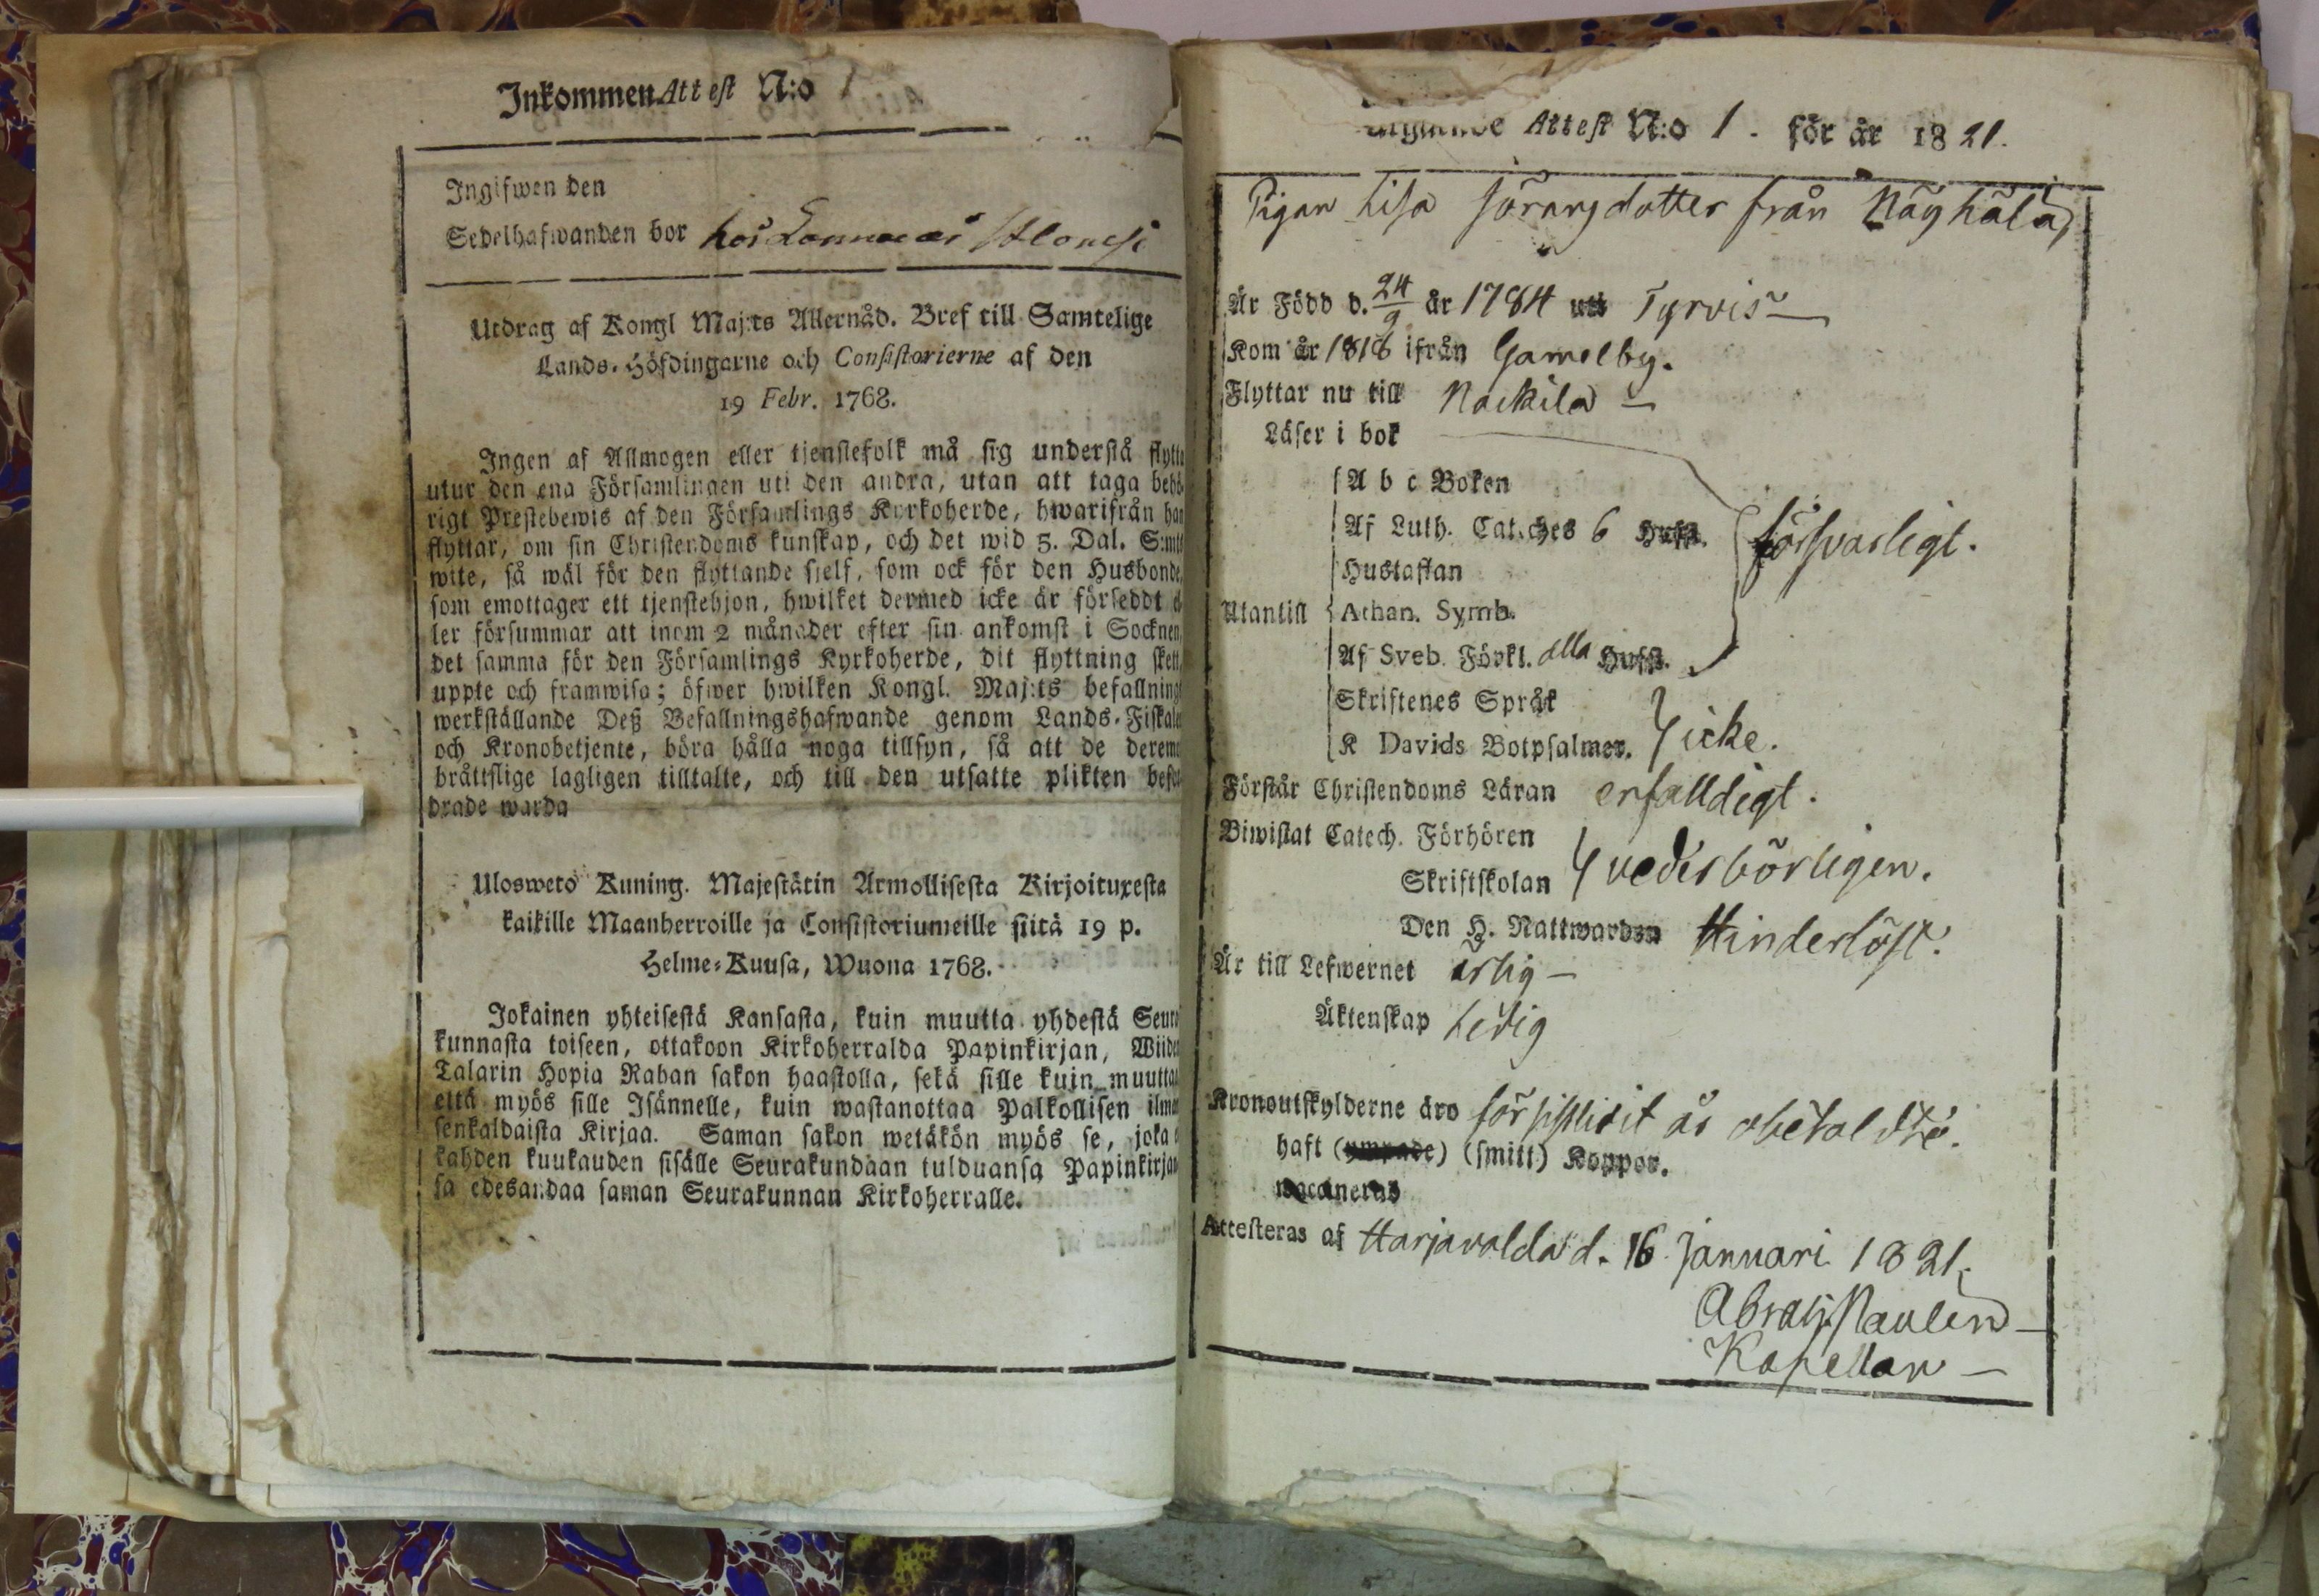 Inkommen Attest N:o 1
Ingifwen den
Sedelhafwanden bor hos
Utdrag af Kongl Maj:ts Allernåd. Bref till Samtelige
Lands-Höfdingarne och Consistorierne af den
19 Febr. 1768.
Ingen af Allmogen eller tjenstefolk må sig understå flytta
utur den ena Församlingen uti den andra, utan att taga behö-
rigt Prestebewis af den Församlings Kyrkoherde, hwarifrån han
flyttar, om sin Christendoms kunskap, och det wid 5. Dal. S:mts
wite, så wäl för den flyttande sjelf, som ock för den Husbonde,
som emottager ett tjenstehjon, hwilket dermed icke är försedt el-
ler försummar att inom 2 månader efter sin ankomst i Socknen,
det samma för den Församlings Kyrkoherde, dit flyttning skett,
uppte och framwisa; öfwer hwilken Kongl. Maj:ts befallning
werkställande Deß Befallningshafwande genom Lands-Fiskaler
och Kronobetjente, böra hålla noga tillsyn, så att de deremot
bråttslige lagligen tilltalte, och till den utsatte plikten befor-
drade warda
Ulosweto Kuning. Majestätin Armollisesta Kirjoituxesta
kaikille Maanherroille ja Consistoriumeille siitä 19 p.
Helme-Kuusa, Wuona 1768.
Jokainen yhteisestä Kansasta, kuin muutta yhdestä Seura-
kunnasta toiseen, ottakoon Kirkoherralda Papinkirjan, Wiiden
Talarin Hopia Rahan sakon haastolla, sekä sille kuin muuttaa
että myös sille Isännelle, kuin wastanottaa Palkollisen ilman
senkaldaista Kirjaa. Saman sakon wetäkön myös se, joka ei
kahden kuukauden sisälle Seurakundaan tulduansa Papinkirjan-
sa edesandaa saman Seurakunnan Kirkoherralle.
Attest N:o 1. för år 1821.
Pigan Lisa Jöransdotter från
Är Född d. 24/9 år 1784 uti Tyrvis
Kom år 1818 ifrån Gamelby.
Flyttar nu till Nackila
Läser i bok
A b c Boken
Af Luth. Cateches 6 Hufst.
försvarligt.
Hustaflan
Utantill Athan. Symb.
Af Sveb. Förkl. alla Hufst.
Skriftenes Språk
K Davids Botpsalmer. icke.
Förstår Christendoms Läran enfalldigt.
Biwistat Catech. Förhören
Skriftskolan vederbörligen.
Den H. Nattwarden Hinderlöst.
Är till Lefwernet ärlig
Äktenskap Ledig
Kronoutskylderne äro för sistlidit år obetaldte.
haft (ympade) (smitt) Koppor.
vaccineras
Attesteras af Harjavalda d. 16 Januari 1821.
Kapellan